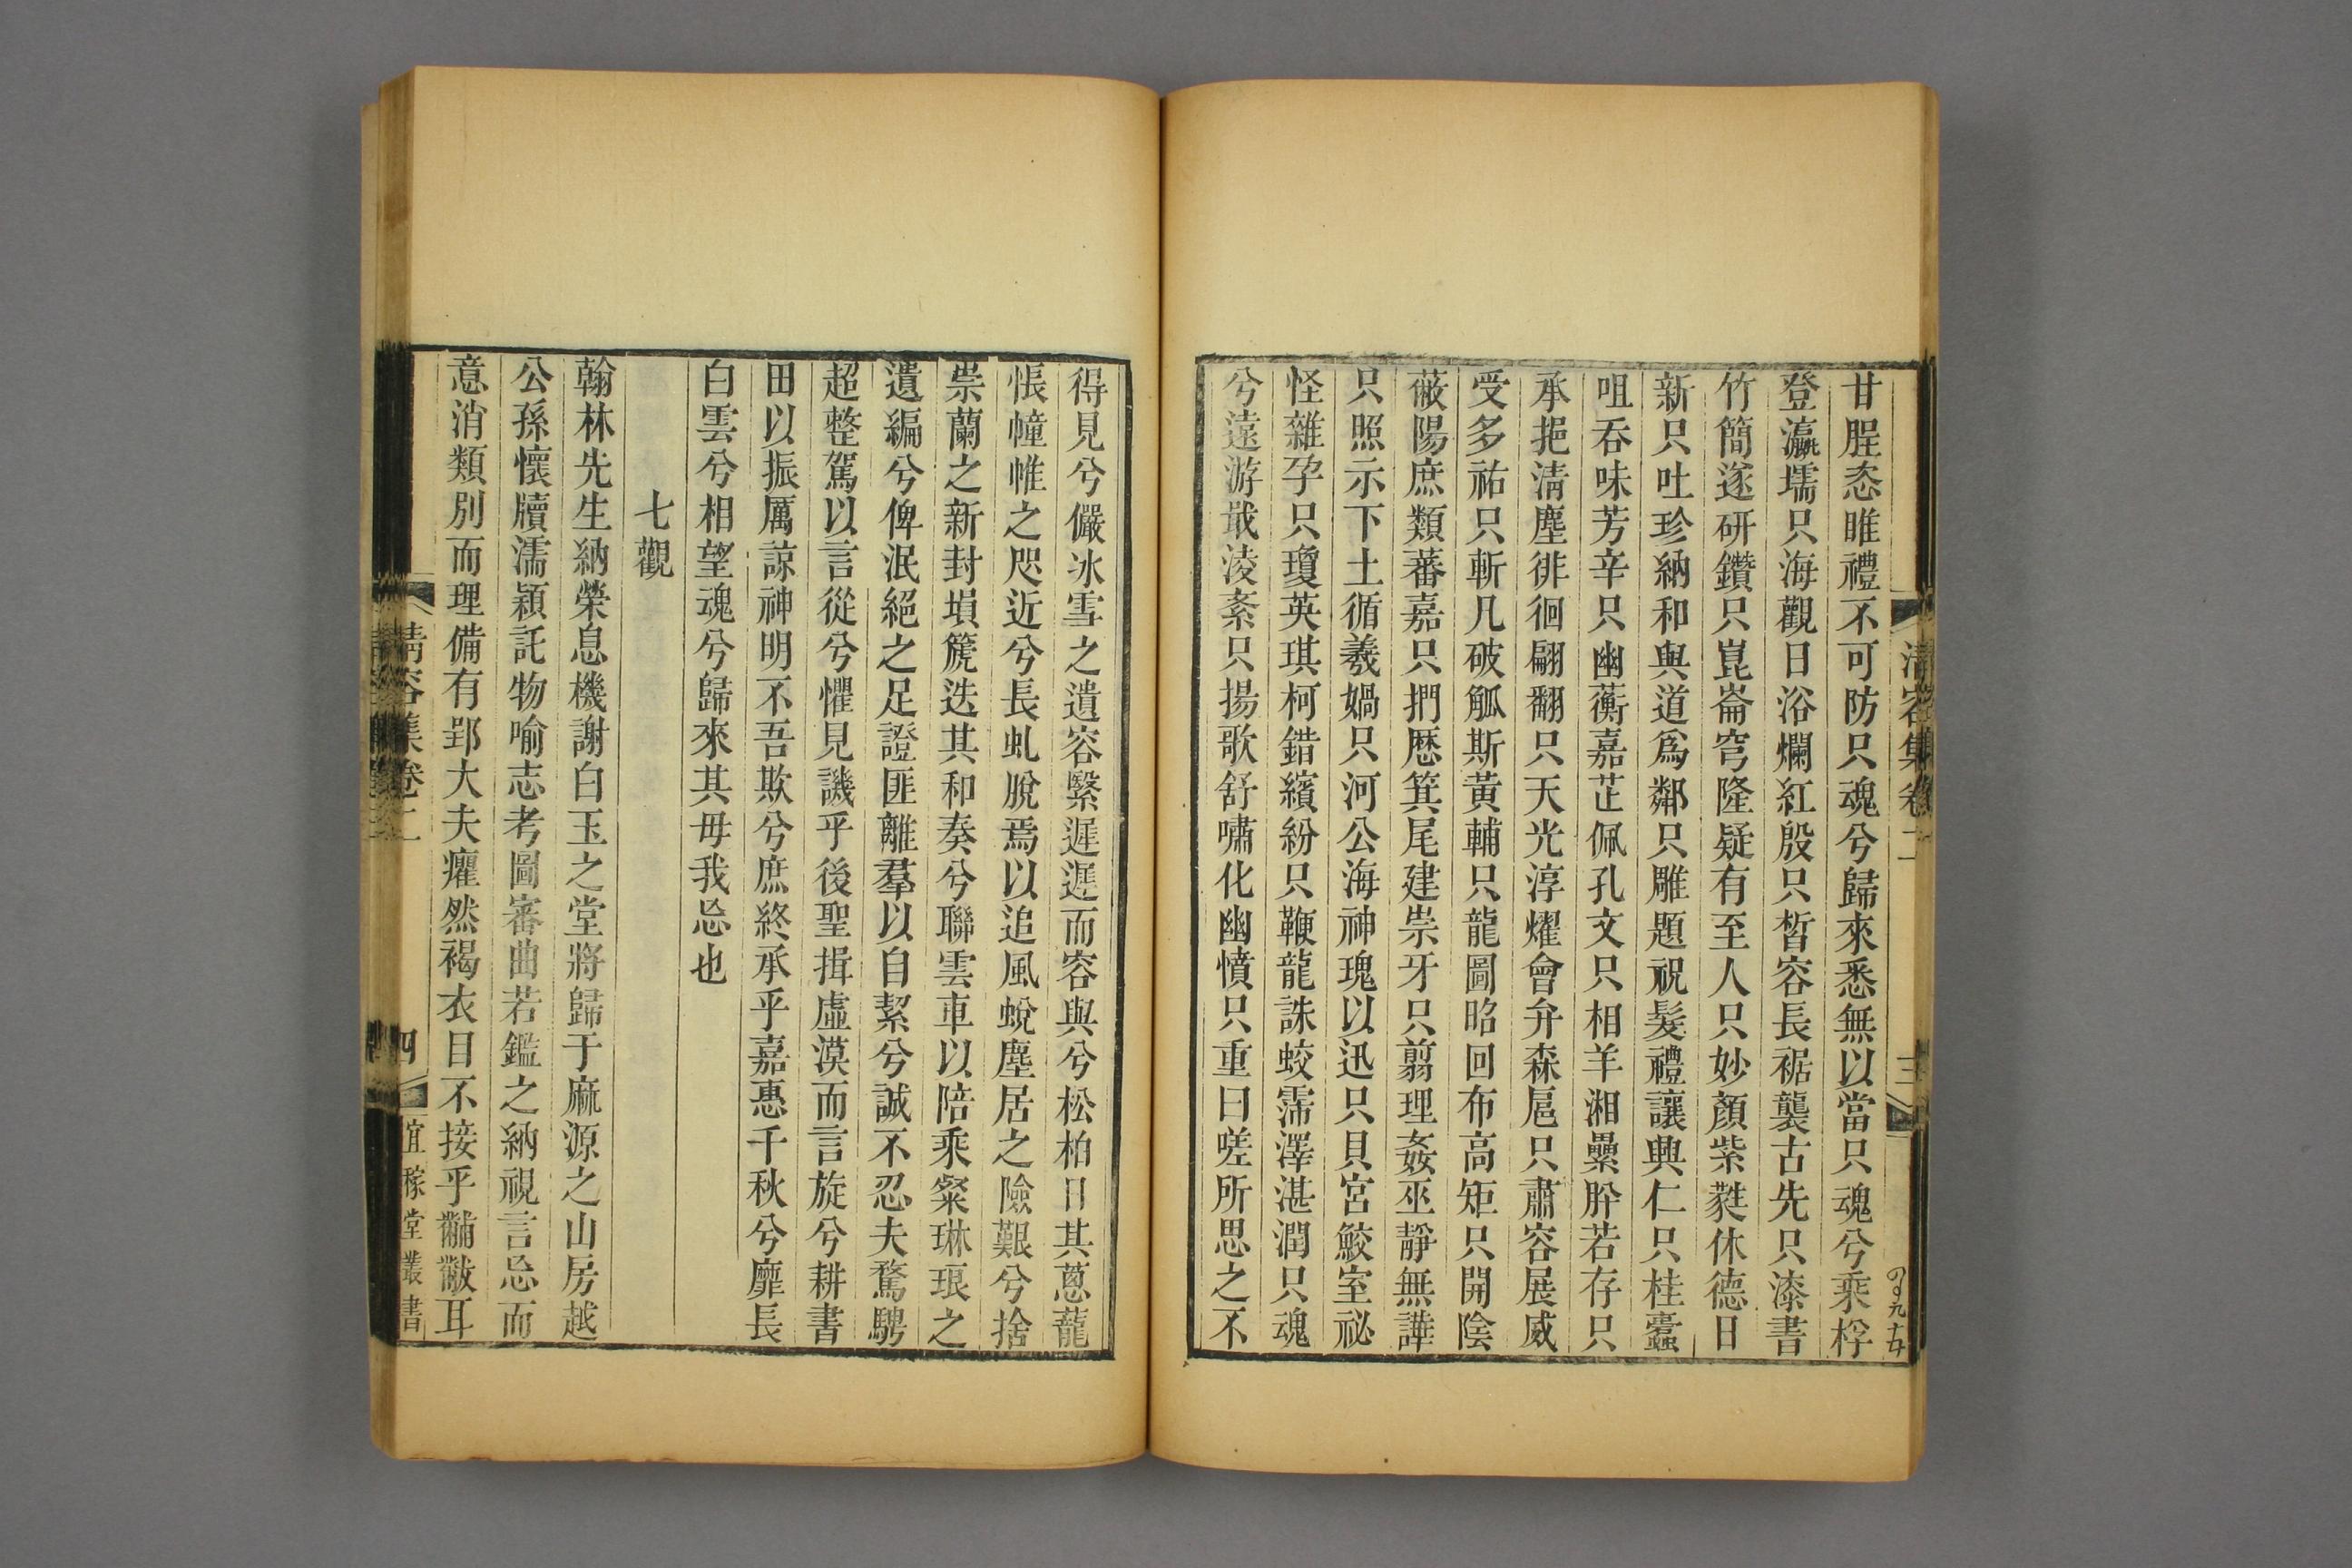 清容集卷二
三
甘脭恣睢禮不可防只魂兮歸來悉無以當只魂兮乘桴
登瀛壖只海觀日浴爛紅殷只皙容長裾襲古先只漆書
竹簡邃研鑽只崑崙穹隆疑有至人只妙顏紫蕤休德日
新只吐珍納和與道爲鄰只雕題祝髮禮讓興仁只桂蠹
咀吞味芳辛只幽蘅嘉芷佩孔文只相羊湘纍肸若存只
承挹清塵徘徊翩翻只天光淳燿會弁森扈只肅容展威
受多祐只斬凡破觚斯黃輔只龍圖昭回布高矩只開陰
蔽陽庶類蕃嘉只捫歷箕尾建崇牙只翦理姦巫靜無譁
只照示下土循羲媧只河公海神瑰以迅只貝宮鮫室祕
怪雜孕只瓊英琪柯錯繽紛只鞭龍誅蛟霈澤湛潤只魂
兮遠游戢淩紊只揚歌舒嘯化幽憤只重曰嗟所思之不
得見兮儼冰雪之遺容繄遲遲而容與兮松柏日其蔥蘢
悵幢帷之咫近兮長虬脫焉以追風蛻塵居之險艱兮捨
崇蘭之新封塤篪迭其和奏兮聯雲車以陪乘粲琳琅之
遺編兮俾泯絕之足證匪離羣以自絜兮誠不忍夫騖騁
超整駕以言從兮懼見譏乎後聖揖虛漠而言旋兮耕書
田以振厲諒神明不吾欺兮庶終承乎嘉惠千秋兮靡長
白雲兮相望魂兮歸來其毋我忘也
七觀
翰林先生納榮息機謝白玉之堂將歸于麻源之山房越
公孫懷牘濡穎託物喻志考圖審曲若鑑之納視言忘而
意消類別而理備有郢大夫癯然褐衣目不接乎黼黻耳
清容集卷二
四
宜稼堂叢書